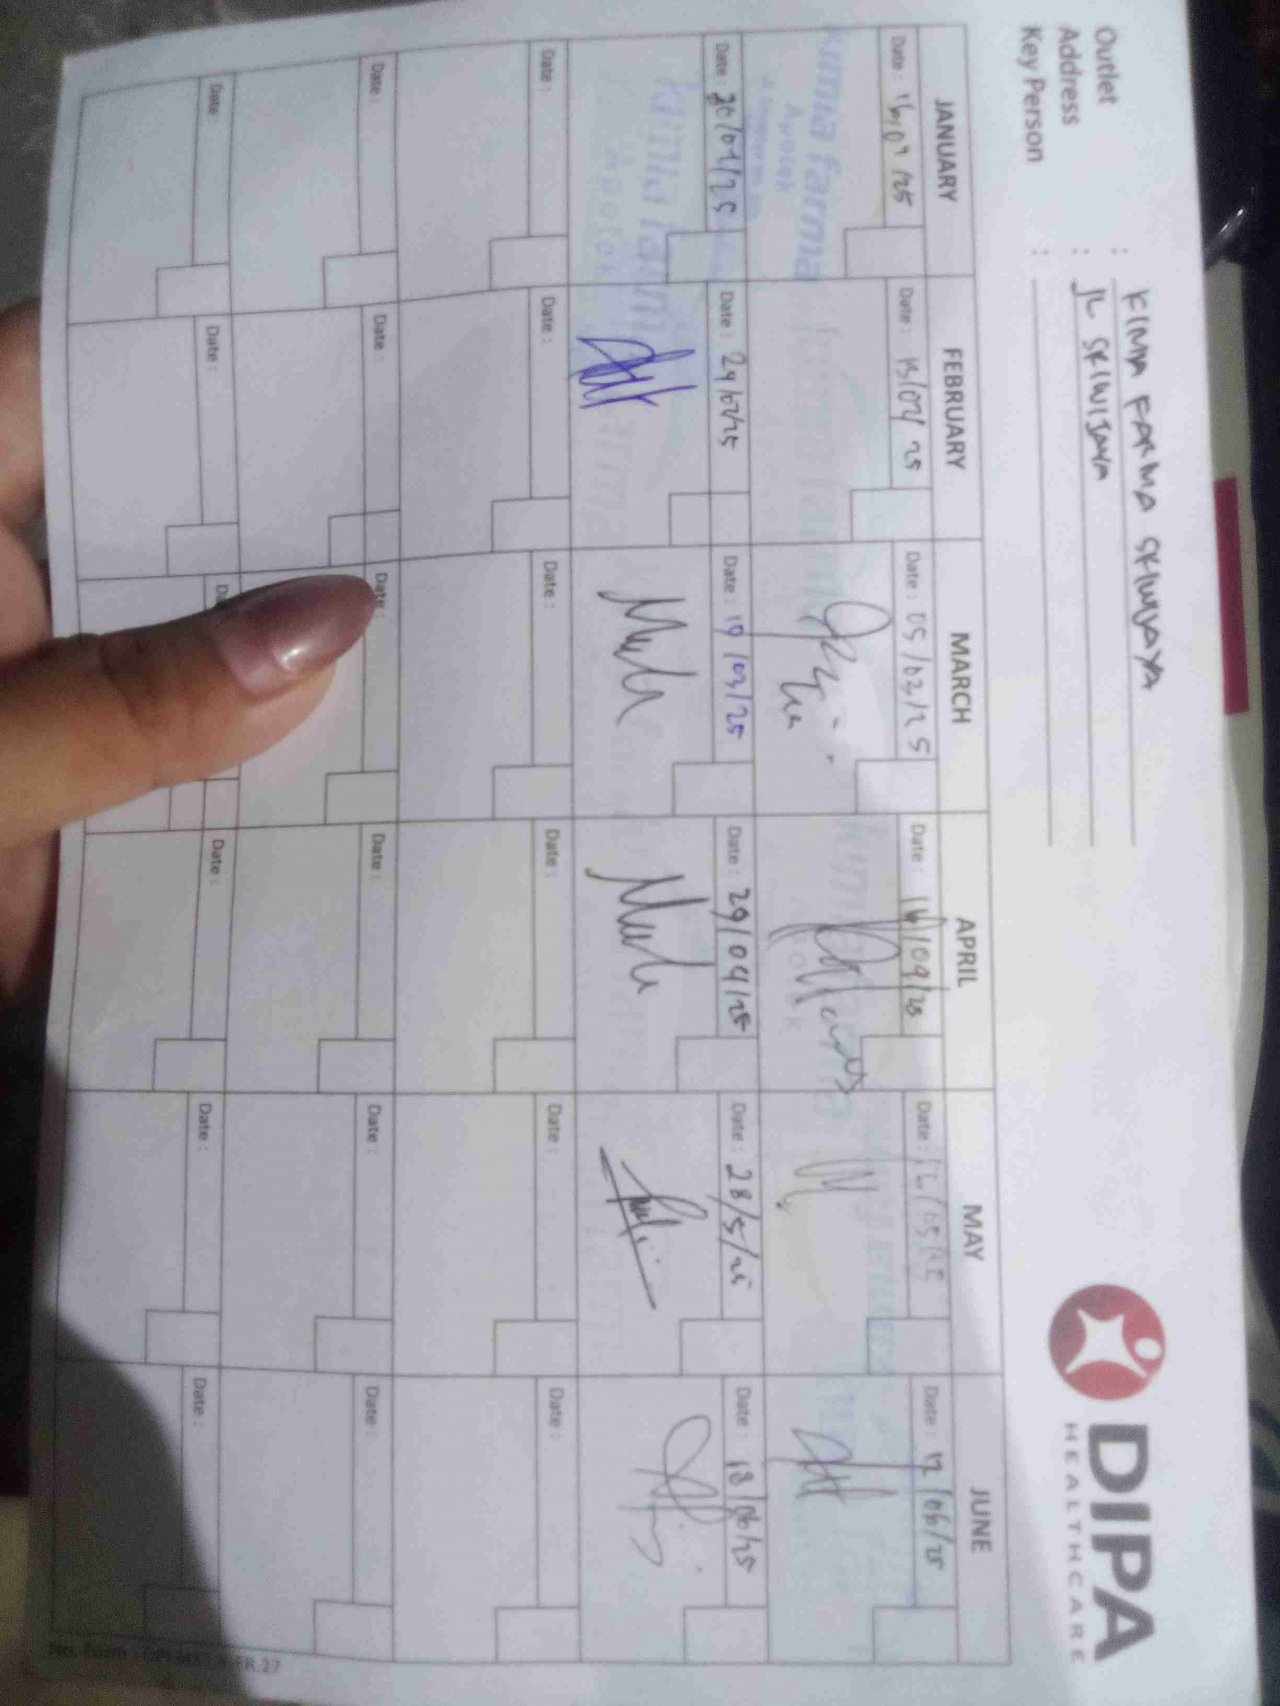 Outlet : KIMIA FARMA SRIWIJAYA
Address : JL SRIWIJAYA
Key Person :
DIPA
HEALTHCARE
JANUARY FEBRUARY MARCH APRIL MAY JUNE
Date : 16/01/25 Date : 13/02/25 Date : 05/03/25 Date : 16/04/25 Date : 12/05/25 Date : 12/06/25
kimia farma
Apotek
Date : 20/01/25 Date : 24/02/25 Date : 19/03/25 Date : 29/04/25 Date : 28/5/25 Date : 18/06/25
kimia farma
Apotek
Date : Date : Date : Date : Date : Date :
Date : Date : Date : Date : Date : Date :
Date Date : Date : Date : Date :